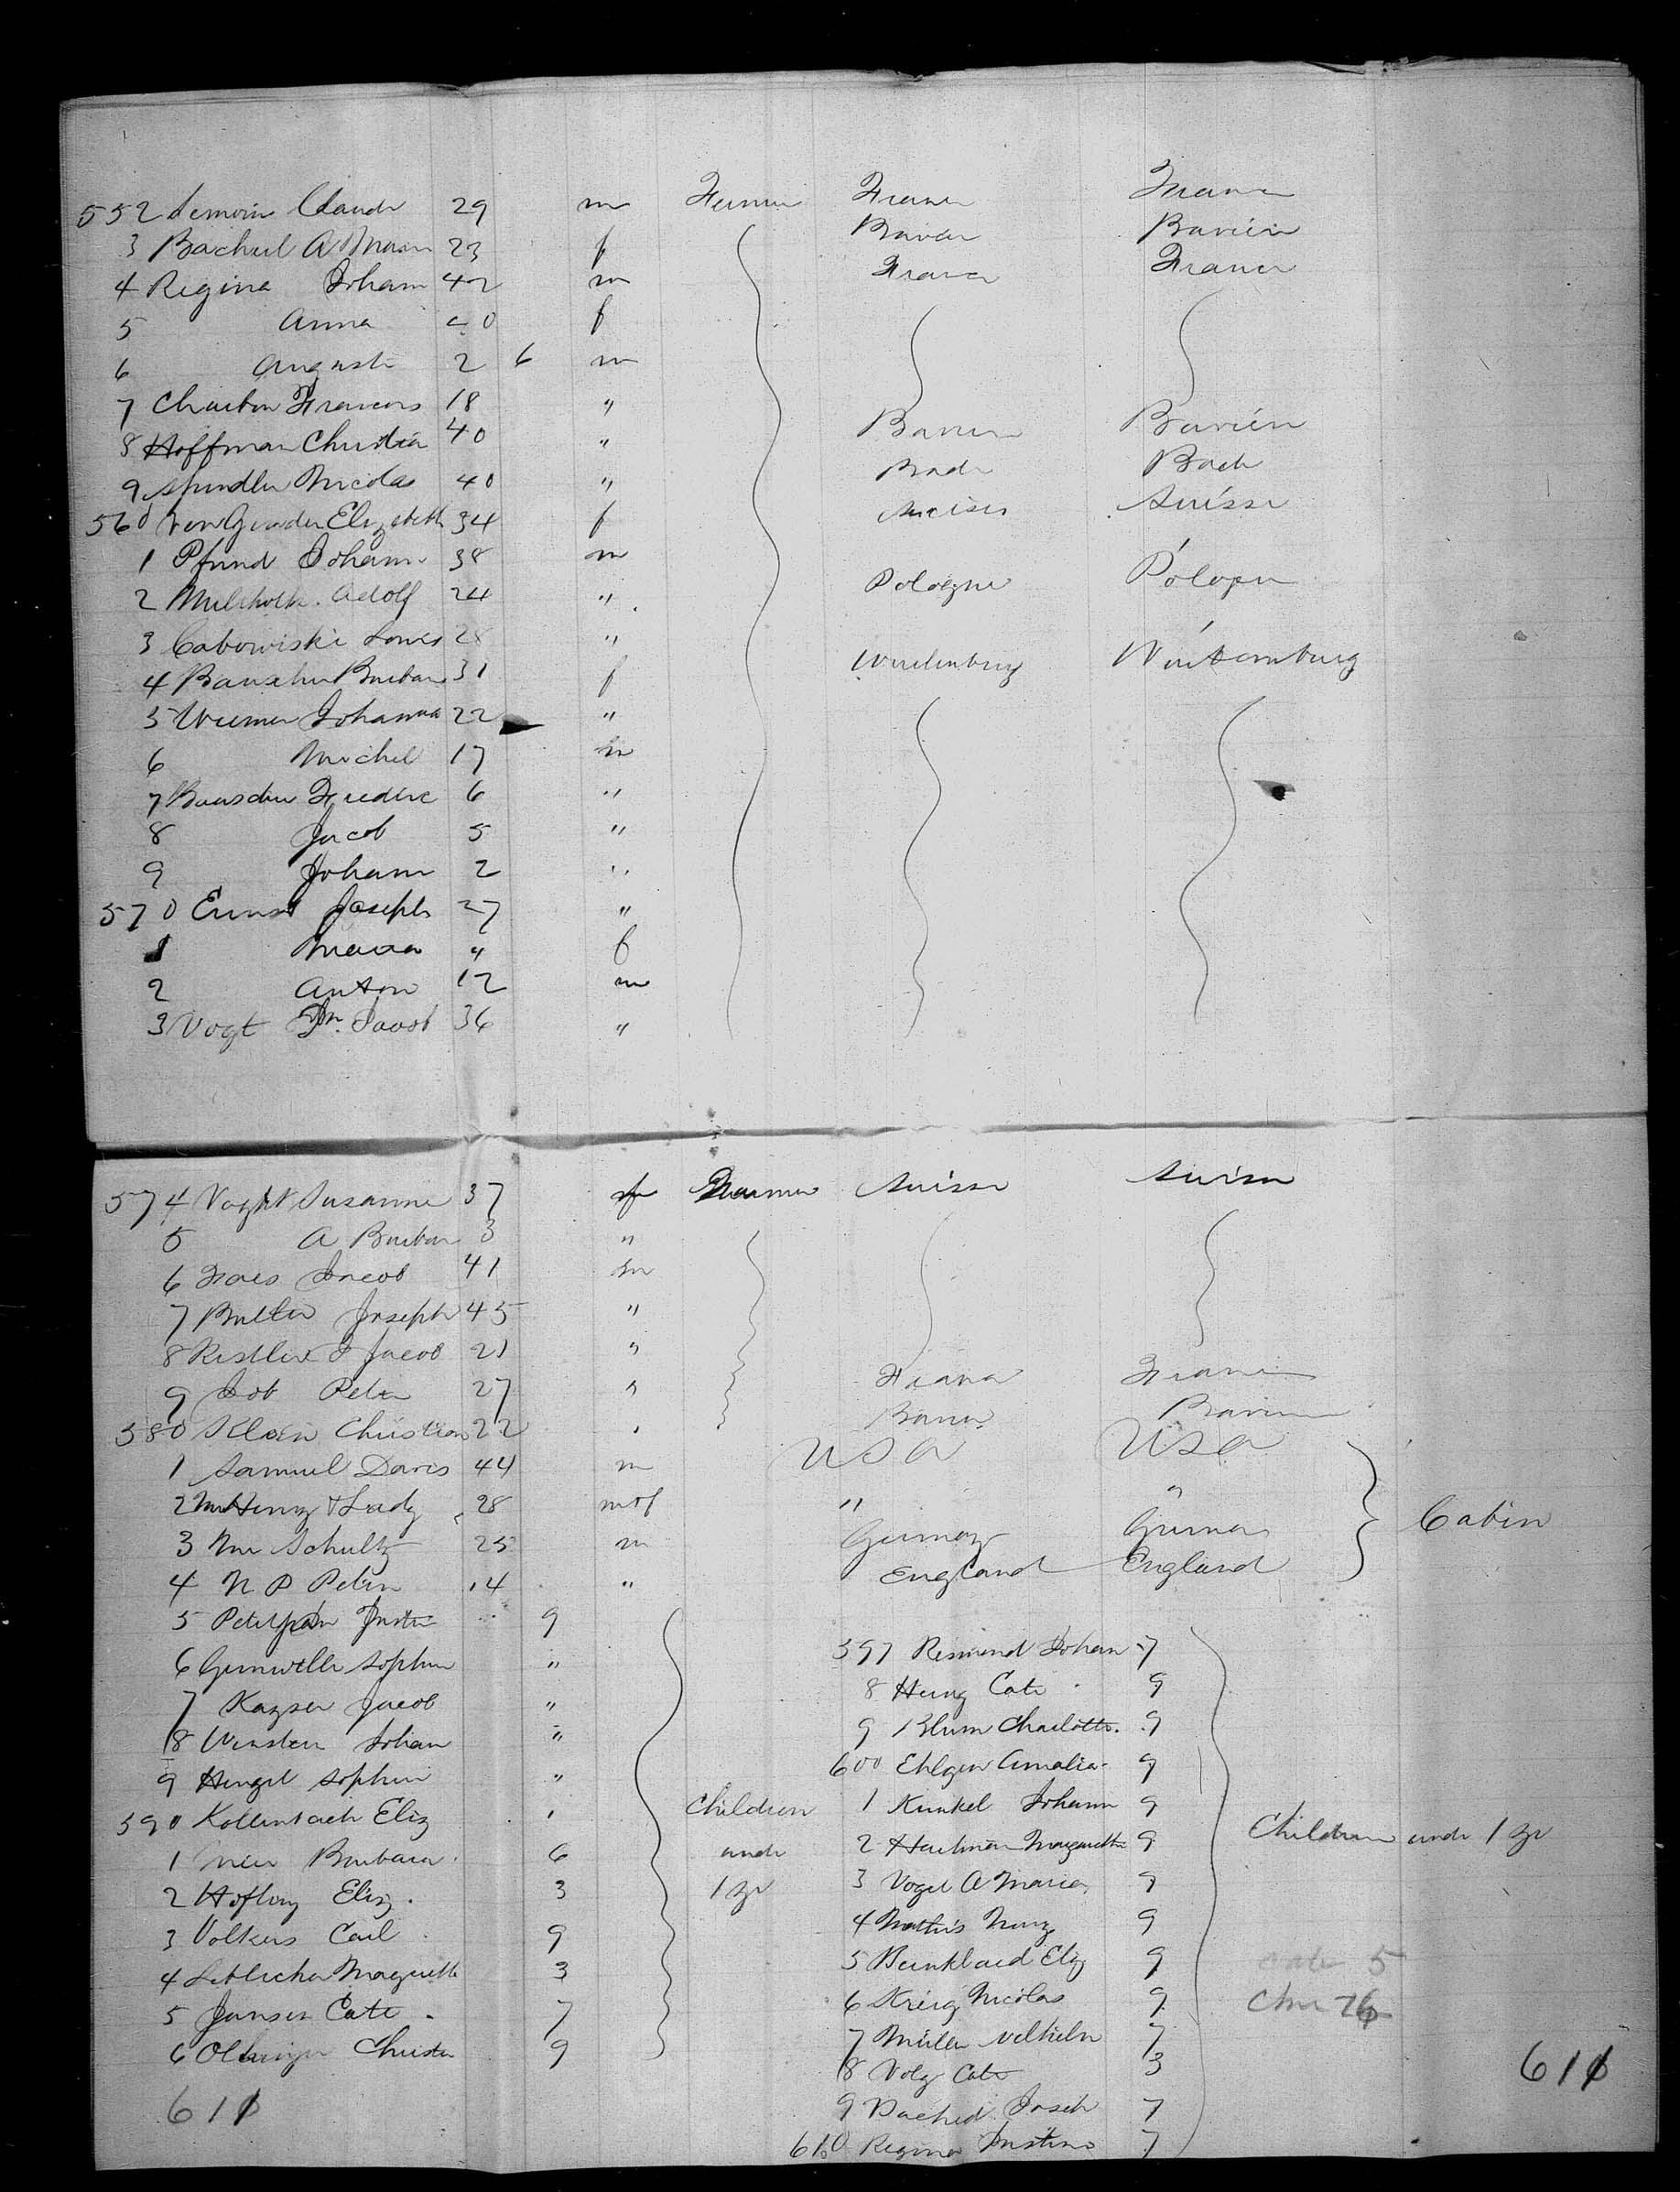 552 Lemoin Claude 29 m Farmer France France
3 Bachul A Maria 23 f Bavier Baviére
4 Regina Johann 42 m France France
5 Anna 40 f
6 August 2 6 m
7 Charbon Francois 18 "
8 Hoffman Christian 40 " Bavier Baviére
9 Spindler Nicolas 40 " Bade Bade
560 Elizabeth 34 f Suisse Suisse
1 Pfund Johann 38 m
2 Adolf 24 " Pologne Pologn
3 Cabowiski Louis 28 "
4 Barbara 31 f Wurtemburg Würtemburg
5 Wiemer Johanna 22 "
6 Michel 17 m
7 Frederic 6 "
8 Jacob 5 "
9 Johann 2 "
570 Ernst Joseph 27 "
1 Maria " f
2 Anton 12 m
3 Vogt Jn. Jacob 36 "
574 Voght Susanne 37 f Farmer Suisse Suisse
5 A Barbar 3 "
6 Jacob 41 m
7 Butler Joseph 45 "
8 Kestler J Jacob 21 "
9 Job Peter 27 " France France
580 Klein Christian 22 " Bavier Bavier
1 Samuel Davis 44 m USA USA
2 Mr Henry & Lady 28 m & f " "
3 Mr Schultz 25 m Germany German
4 N P Peters 14 " England England
Cabin
5 9
6 Sophie "
7 Kayser Jacob "
8 Johan "
9 Hengel Sophie "
590 Eliz "
1 Barbara 6
2 Hoflwy Eliz. 3
3 Volkers Carl 9
4 Margueritte 3
5 Jansen Cate. 7
6 Christer 9
611
Children
unde
1 yr
597 Resmond Johan 7
8 Heing Cate 9
9 Blum Charlotte. 9
600 Ehlgen Amalia 9
1 Kunkel Johann 9
2 Hartman Margueritte 9
3 Vogel A Maria 9
4 Mathis 9
5 Eliz 9
6 Krieg Nicolas 9
7 Müller 7
8 Volz Cate 3
9 Joseh 7
610 Regina Justine 7
Children unde 1 yr
5
76
611